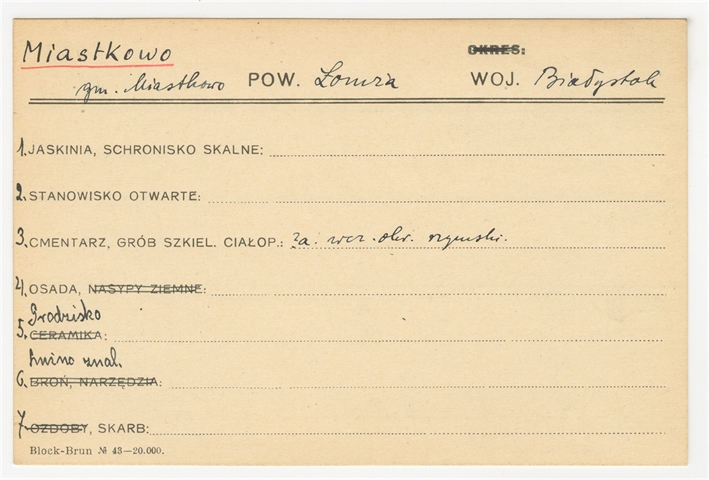 Miastkowo OKRES:
gm. Miastkowo POW. Łomża WOJ. Białystok
1. JASKINIA, SCHRONISKO SKALNE:
2. STANOWISKO OTWARTE:
3. CMENTARZ, GRÓB SZKIEL. CIAŁOP.: 2a. wcz. okr. rzymski.
4. OSADA, NASYPY ZIEMNE:
Grodzisko
5. CERAMIKA:
luźno znal.
6. BROŃ, NARZĘDZIA:
7. OZDOBY, SKARB:
Block-Brun № 43—20.000.